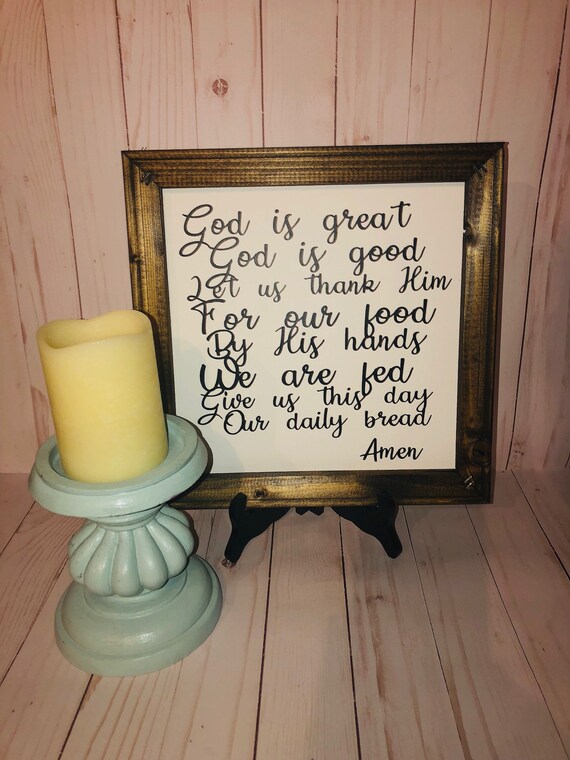 God is great
God is good
Let us thank Him
For our food
By His hands
We are fed
Give us this day
Our daily bread
Amen